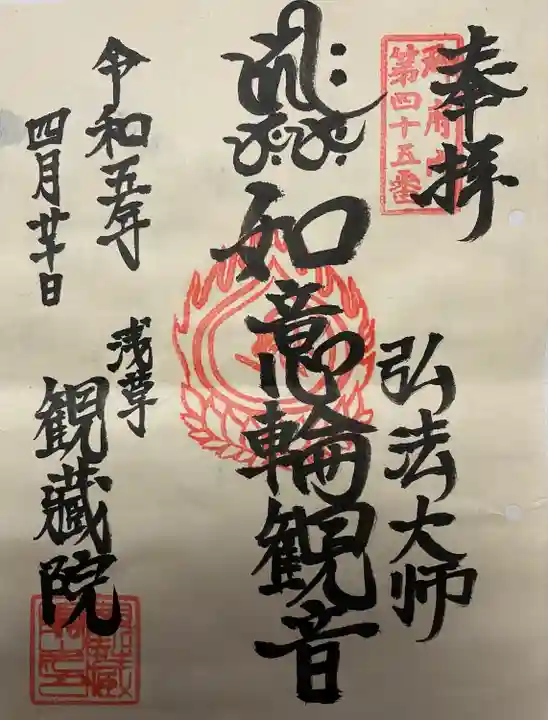 奉拝
第四十五番
弘法大師
如意輪観音
令和五年
四月廿日
浅草
観蔵院